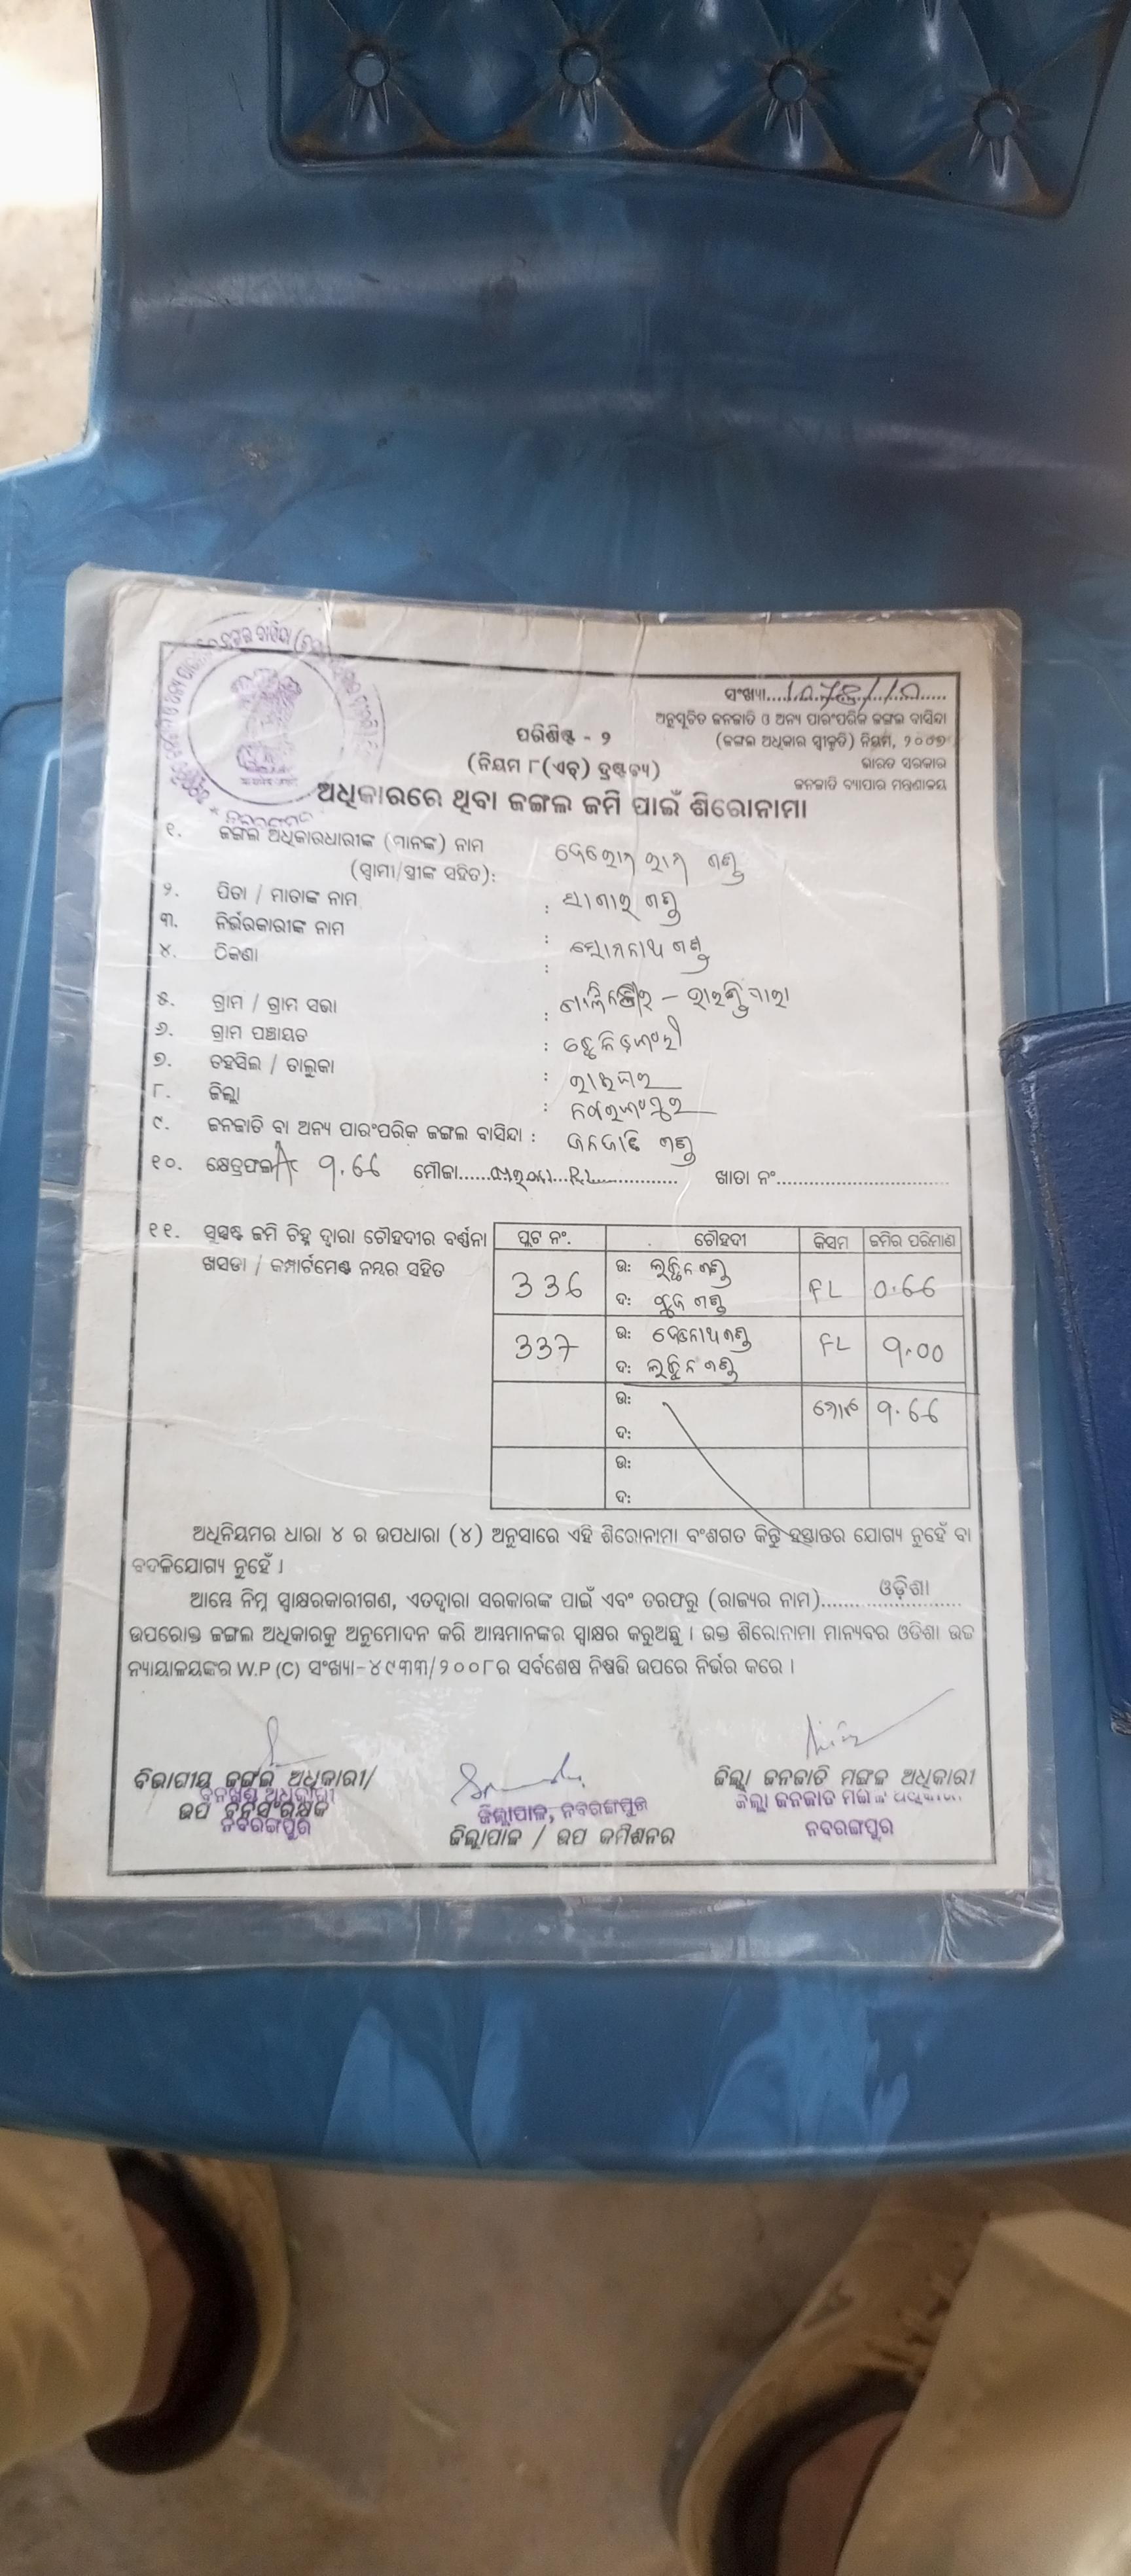 ସଂଖ୍ୟା....1078/10....
ଅନୁସୂଚିତ ଜନଜାତି ଓ ଅନ୍ୟ ପାରଂପରିକ ଜଙ୍ଗଲ ବାସିନ୍ଦା
ପରିଶିଷ୍ଟ - ୨
(ଜଙ୍ଗଲ ଅଧିକାର ସ୍ୱୀକୃତି) ନିୟମ, ୨୦୦୭
(ନିୟମ ୮(ଏଚ୍) ଦ୍ରଷ୍ଟବ୍ୟ)
ଭାରତ ସରକାର
ଜନଜାତି ବ୍ୟାପାର ମନ୍ତ୍ରଣାଳୟ
ଅଧିକାରରେ ଥିବା ଜଙ୍ଗଲ ଜମି ପାଇଁ ଶିରୋନାମା
୧. ଜଙ୍ଗଲ ଅଧିକାରଧାରୀଙ୍କ (ମାନଙ୍କ) ନାମ
(ସ୍ୱାମୀ/ସ୍ତ୍ରୀଙ୍କ ସହିତ): ଗଣ୍ଡ
୨. ପିତା / ମାତାଙ୍କ ନାମ : ଗଣ୍ଡ
୩. ନିର୍ଭରକାରୀଙ୍କ ନାମ : ଗଣ୍ଡ
୪. ଠିକଣା :
୫. ଗ୍ରାମ / ଗ୍ରାମ ସଭା :
୬. ଗ୍ରାମ ପଞ୍ଚାୟତ :
୭. ତହସିଲ / ତାଲୁକା : ରାଇଘର
୮. ଜିଲ୍ଲା : ନବରଙ୍ଗପୁର
୯. ଜନଜାତି ବା ଅନ୍ୟ ପାରଂପରିକ ଜଙ୍ଗଲ ବାସିନ୍ଦା : ଜନଜାତି ଗଣ୍ଡ
୧୦. କ୍ଷେତ୍ରଫଳ Ac ୨.66 ମୌଜା........ ଖାତା ନଂ........
୧୧. ସୁସ୍ପଷ୍ଟ ଜମି ଚିହ୍ନ ଦ୍ୱାରା ଚୌହଦୀର ବର୍ଣ୍ଣନା
ଖସଡା / କମ୍ପାର୍ଟମେଣ୍ଟ ନମ୍ବର ସହିତ
ପ୍ଲଟ ନଂ. ଚୌହଦୀ କିସମ ଜମିର ପରିମାଣ
336 ଉ: ଲଛିନ ଗଣ୍ଡ FL 0.66
ଦ: ଗଣ୍ଡ
337 ଉ: ଗଣ୍ଡ FL ୨.00
ଦ: ଲଛିନ ଗଣ୍ଡ
ଉ: ମୋଟ ୨.66
ଦ:
ଉ:
ଦ:
ଅଧିନିୟମର ଧାରା ୪ ର ଉପଧାରା (୪) ଅନୁସାରେ ଏହି ଶିରୋନାମା ବଂଶଗତ କିନ୍ତୁ ହସ୍ତାନ୍ତର ଯୋଗ୍ୟ ନୁହେଁ ବା
ବଦଳିଯୋଗ୍ୟ ନୁହେଁ ।
ଆମ୍ଭେ ନିମ୍ନ ସ୍ୱାକ୍ଷରକାରୀଗଣ, ଏତଦ୍ୱାରା ସରକାରଙ୍କ ପାଇଁ ଏବଂ ତରଫରୁ (ରାଜ୍ୟର ନାମ)....... ଓଡ଼ିଶା
ଉପରୋକ୍ତ ଜଙ୍ଗଲ ଅଧିକାରକୁ ଅନୁମୋଦନ କରି ଆମ୍ଭମାନଙ୍କର ସ୍ୱାକ୍ଷର କରୁଅଛୁ । ଉକ୍ତ ଶିରୋନାମା ମାନ୍ୟବର ଓଡିଶା ଉଚ୍ଚ
ନ୍ୟାୟାଳୟଙ୍କର W.P (C) ସଂଖ୍ୟା-୪୯୩୩/୨୦୦୮ର ସର୍ବଶେଷ ନିଷ୍ପତ୍ତି ଉପରେ ନିର୍ଭର କରେ ।
ବିଭାଗୀୟ ଜଙ୍ଗଲ ଅଧିକାରୀ/
ବନଖଣ୍ଡ ଅଧିକାରୀ
ଉପ ବନସଂରକ୍ଷକ
ନବରଙ୍ଗପୁର
ଜିଲ୍ଲାପାଳ, ନବରଙ୍ଗପୁର
ଜିଲ୍ଲାପାଳ / ଉପ କମିଶନର
ଜିଲ୍ଲା ଜନଜାତି ମଙ୍ଗଳ ଅଧିକାରୀ
ଜିଲ୍ଲା ଜନଜାତି ମଙ୍ଗଳ ଅଧିକାରୀ
ନବରଙ୍ଗପୁର